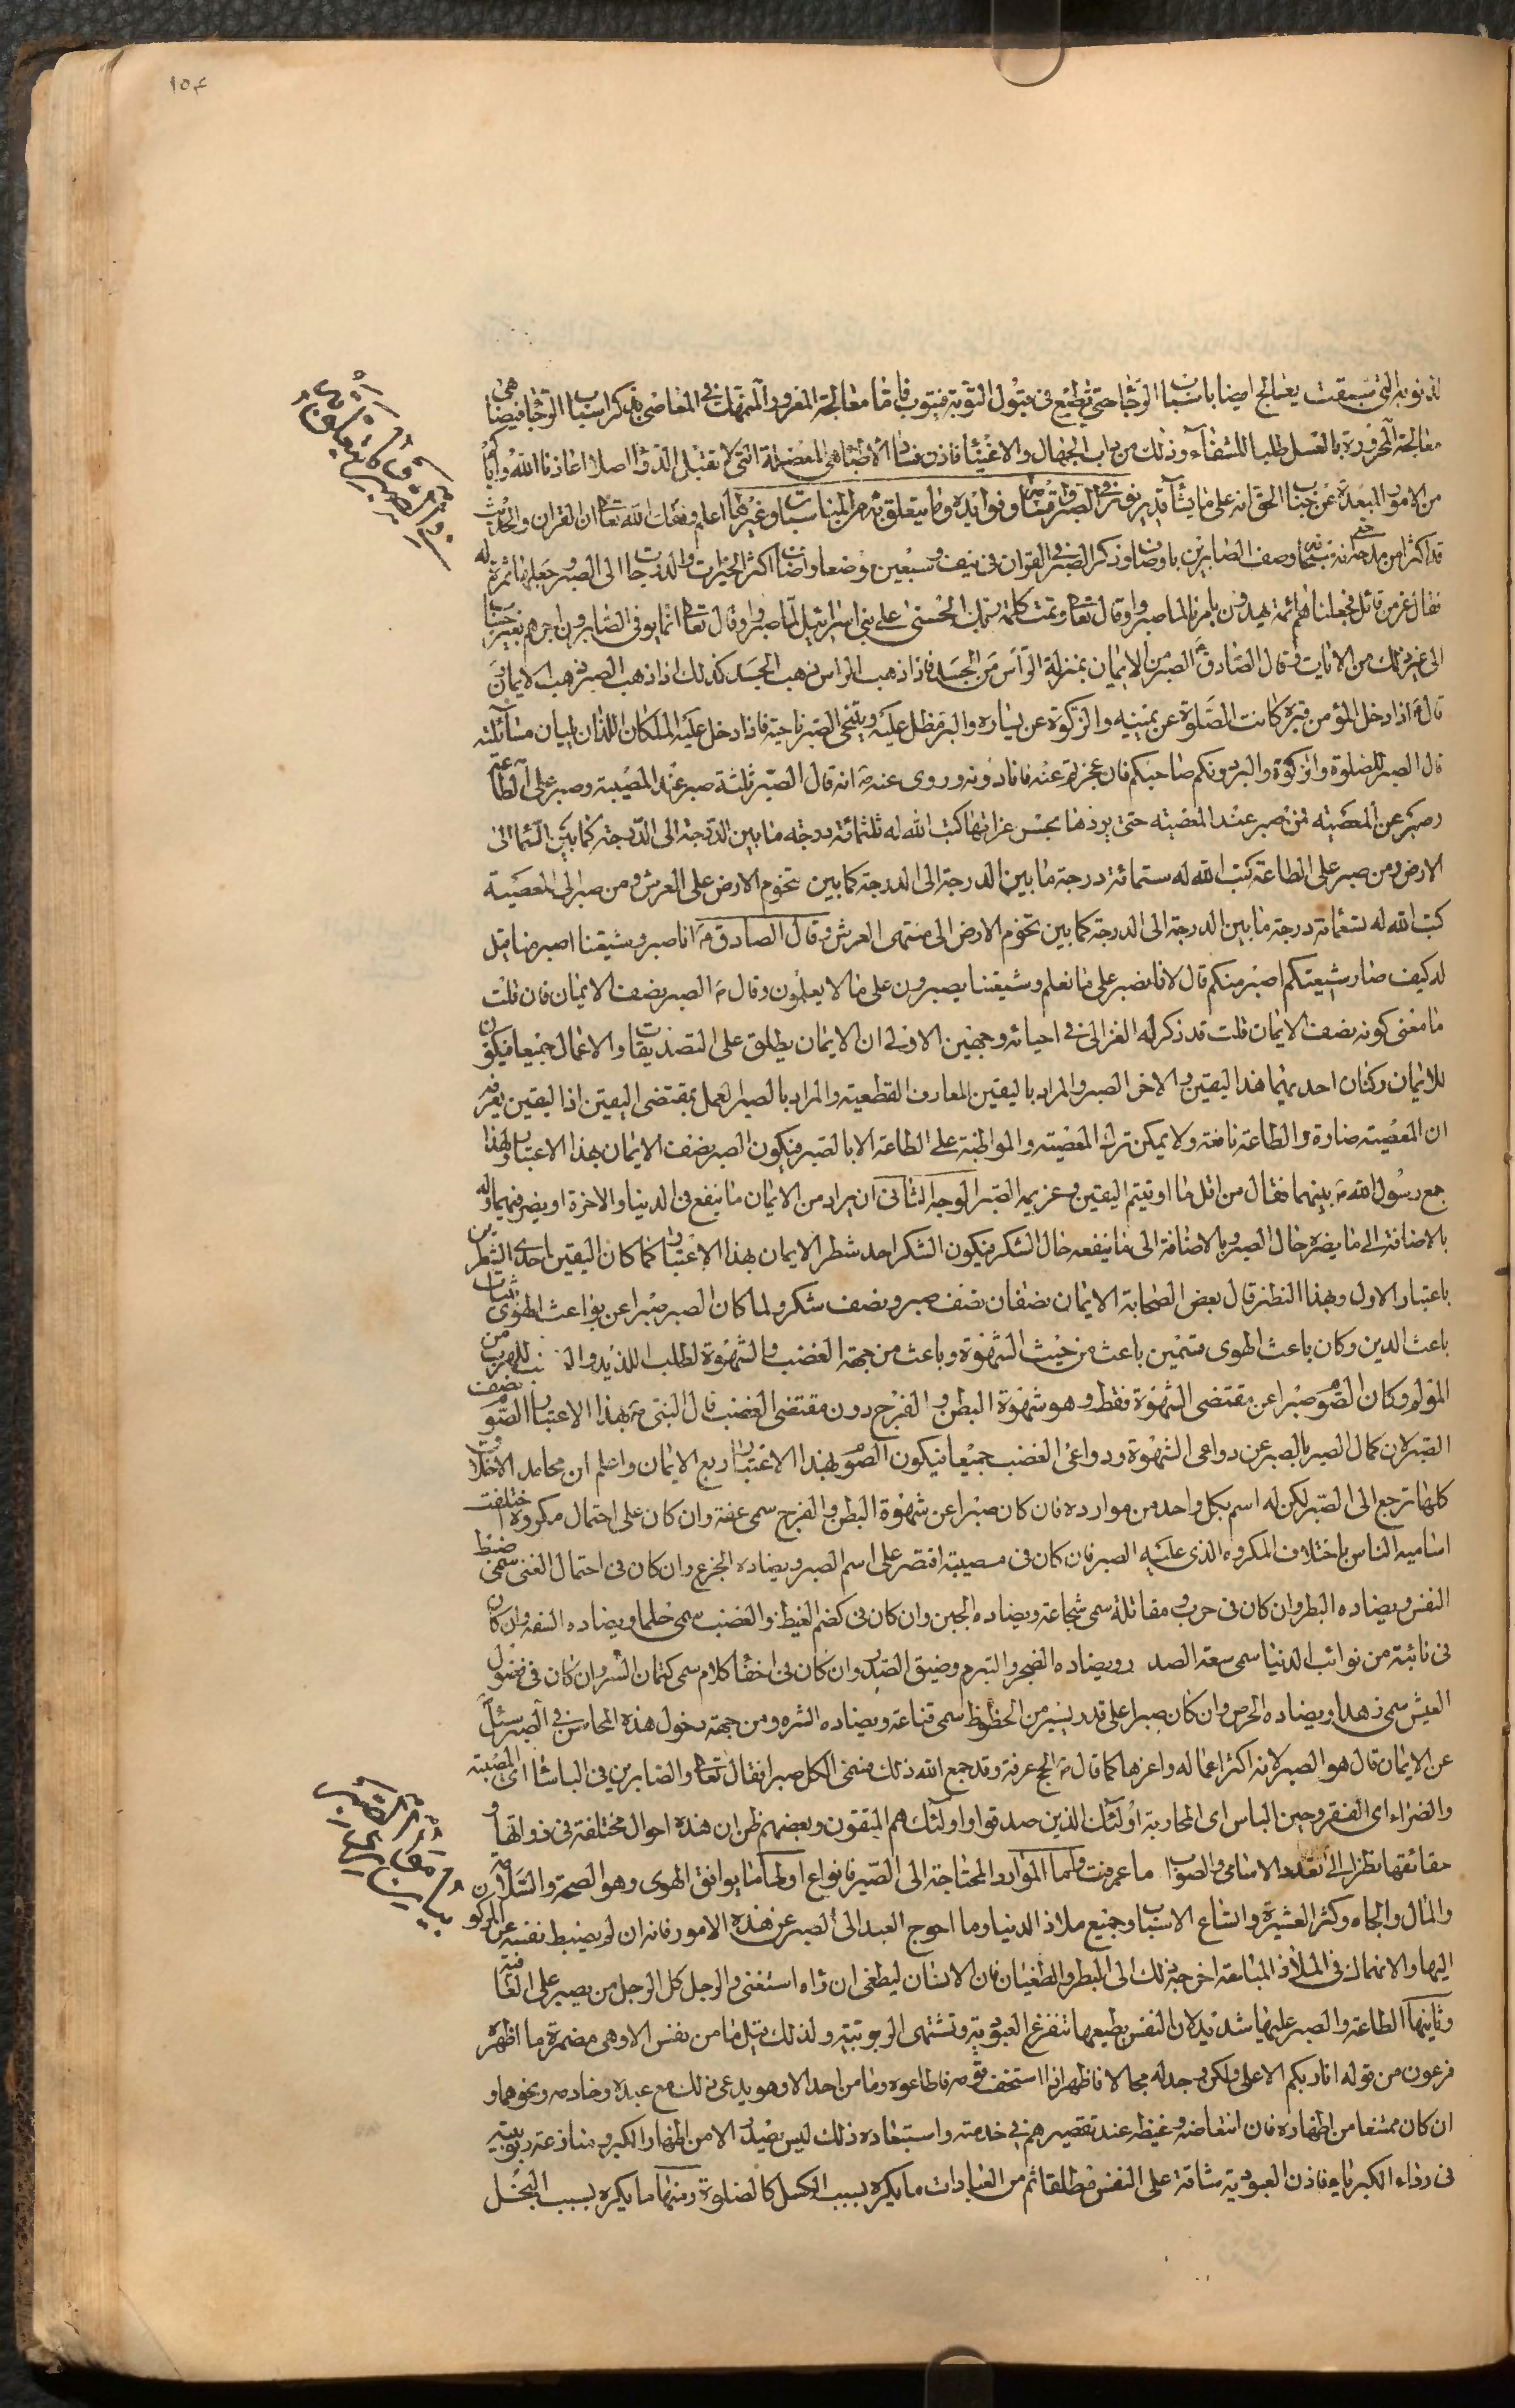 ١٥٤
لذنوبه التى سبقت يعالج ايضا باسباب الرجا حتى يطمع فى قبول التوبة فيتوب فاما معالجة المغرور المنهمك فى المعاصى بذكر اسباب الرجا فيضاهى
معالجة المحرور بالعسل طلبا للشفاء وذلك من داب الجهال والاغنيا فاذن فساد الاطباء هى المعضلة التى لا تقبل الدوا اصلا اعاذنا الله واياكم
من الامور المبعدة عن جناب الحق انه على ما يشاء قدير نور فى الصبر واقسامه وفوائده وما يتعلق به من المناسبات وغيرها اعلم وفقك الله تعا ان القران والحديث
قد اكثرا من مدحه فانه سبحانه وصف الصابرين باوصاف وذكر الصبر فى القران فى نيف وسبعين موضعا واضاف اكثر الخيرات والدرجات الى الصبر وجعلها ثمرة له
فقال عز من قائل فجعلناهم ائمة يهدون بامرنا لما صبروا وقال تعا وتمت كلمة ربك الحسنى على بنى اسرائيل بما صبروا وقال تعا انما يوفى الصابرون اجرهم بغير حساب
الى غير ذلك من الايات وقال الصادق ع الصبر من الايمان بمنزلة الراس من الجسد فاذا ذهب الراس ذهب الجسد كذلك اذا ذهب الصبر ذهب الايمان و
قال ع اذا دخل المؤمن قبره كانت الصلوة عن يمينه والزكوة عن يساره والبر مظل عليه ويتنحى الصبر ناحية فاذا دخل عليه الملكان اللذان يليان مسائلته
قال الصبر للصلوة والزكوة والبر دونكم صاحبكم فان عجزتم عنه فانا دونه وروى عنه ص انه قال الصبر ثلثة صبر عند المصيبة وصبر على الطاعة
وصبر عن المعصية فمن صبر عند المصيبة حتى يردها بحسن عزائها كتب الله له ثلثمائة درجة ما بين الدرجة الى الدرجة كما بين السما الى
الارض ومن صبر على الطاعة كتب الله له ستمائة درجة ما بين الدرجة الى الدرجة كما بين تخوم الارض على العرش ومن صبر الى المعصية
كتب الله له تسعمائة درجة ما بين الدرجة الى الدرجة كما بين تخوم الارض الى منتهى العرش وقال الصادق ع انا صبر وشيعتنا اصبر منا قيل
له كيف صار وشيعتكم اصبر منكم قال لانا نصبر على ما نعلم وشيعتنا يصبرون على ما لا يعلمون وقال ص الصبر نصف الايمان فان قلت
ما معنى كونه نصف الايمان قلت قد ذكر له الغزالى فى احيائه وجهين الاول ان الايمان يطلق على التصديقات والاعمال جميعا فيكون
للايمان ركنان احديهما هذا اليقين والاخر الصبر والمراد باليقين المعارف القطعية والمراد بالصبر العمل بمقتضى اليقين اذ اليقين يعرفه
ان المعصية ضارة والطاعة نافعة ولا يمكن ترك المعصية والمواظبة على الطاعة الا بالصبر فيكون الصبر نصف الايمان بهذا الاعتبار ولهذا
جمع رسول الله ص بينهما فقال من اقل ما اوتيتم اليقين وعزيمه الصبر الوجه الثانى ان يراد من الايمان ما ينفع فى الدنيا والاخرة او يضر فيهما وله
بالاضافة الى ما يضره حال الصبر وبالاضافة الى ما ينفعه حال الشكر فيكون الشكر احد شطر الايمان بهذا الاعتبار كما كان اليقين احدى الشطرين
باعتبار الاول وبهذا النظر قال بعض الصحابة الايمان نصفان نصف صبر ونصف شكر ولما كان الصبر صبرا عن بواعث الهوى بثبات
باعث الدين وكان باعث الهوى قسمين باعث من حيث الشهوة وباعث من جهة الغضب والشهوة لطلب اللذيذ والغضب للهرب من
المؤلم وكان الصوم صبرا عن مقتضى الشهوة فقط وهو شهوة البطن والفرج دون مقتضى الغضب قال النبى ص بهذا الاعتبار الصوم نصف
الصبر لان كمال الصبر بالصبر عن دواعى الشهوة ودواعى الغضب جميعا فيكون الصوم بهذا الاعتبار ربع الايمان واعلم ان محامد الاخلاق
كلها ترجع الى الصبر لكن له اسم بكل واحد من موارده فان كان صبرا عن شهوة البطن والفرج سمى عفة وان كان على احتمال مكروه اختلفت
اساميه الناس باختلاف المكروه الذى عليه الصبر فان كان فى مصيبة اقتصر على اسم الصبر ويضاده الجزع وان كان فى احتمال الغنى سمى ضبط
النفس ويضاده البطر وان كان فى حرب ومقاتلة سمى شجاعة ويضاده الجبن وان كان فى كضم الغيظ والغضب سمى حلما ويضاده السفه وان كان
فى نائبة من نوائب الدنيا سمى سعة الصدر ويضاده الضجر والتبرم وضيق الصدر وان كان فى اخفا كلام سمى كتمان السر وان كان فى فضول
العيش سمى زهدا ويضاده الحرص وان كان صبرا على قدر يسير من الحظوظ سمى قناعة ويضاده الشره ومن جهة دخول هذه المحاسن فى الصبر سئل
عن الايمان قال هو الصبر لانه اكثر اعماله واعزها كما قال ص الحج عرفة وقد جمع الله ذلك فسمى الكل صبرا فقال تعا والصابرين فى الباساء اى المصيبة
والضراء اى الفقر وحين الباس اى المحاربة اولئك الذين صدقوا واولئك هم المتقون وبعضهم ظن ان هذه احوال مختلفة فى ذواتها و
حقائقها نظرا الى تعدد الاسامى والصواب ما عرفت واما الموارد المحتاجة الى الصبر فانواع اولها ما يوافق الهوى وهو الصحة والسلامة
والمال والجاه وكثر العشيرة واتساع الاسباب وجميع ملاذ الدنيا وما احوج العبد الى الصبر عن هذه الامور فانه ان لم يضبط نفسه عن الركون
اليها والانهماك فى الملاذ المباحة اخرجه ذلك الى البطر والطغيان فان الانسان ليطغى ان راه استغنى والرجل كل الرجل من يصبر على العافية
وثانيها الطاعة والصبر عليها شديد لان النفس بطبعها تنفر عن العبودية وتشتهى الربوبية ولذلك قيل ما من نفس الا وهى مضمرة ما اظهره
فرعون من قوله انا ربكم الاعلى ولكن وجد له مجالا فاظهر اذا استخف قومه فاطاعوه وما من احد الا وهو يدعى ذلك مع عبده وخادمه ونحوهما و
ان كان ممتنعا من اظهاره فان انتعاضه وغيظه عند تقصيرهم فى خدمته واستبعاده ذلك ليس يصدر الا من اظهار الكبر ومنازعة ربوبية
فى رداء الكبرياء فاذن العبودية شاقة على النفس مطلقا ثم من العبادات ما يكره بسبب الكسل كالصلوة ومنها ما يكره بسبب البخل